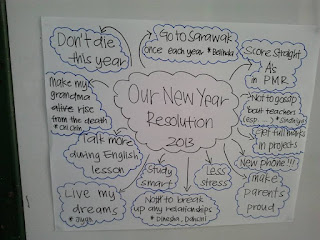 Our New Year
Resolution
2013
Don't die
this year
Go to Sarawak
once each year *Belinda
Score straight
A's
in PMR
Make my
grandma
alive rise
from the death
Not to gossip
'bout teachers
(esp....)
Get full marks
in projects
Talk more
during English
lesson
New phone!!!
Live my
dreams
Study
smart
Not to break
up any relationships
Less
stress
make
parents
proud